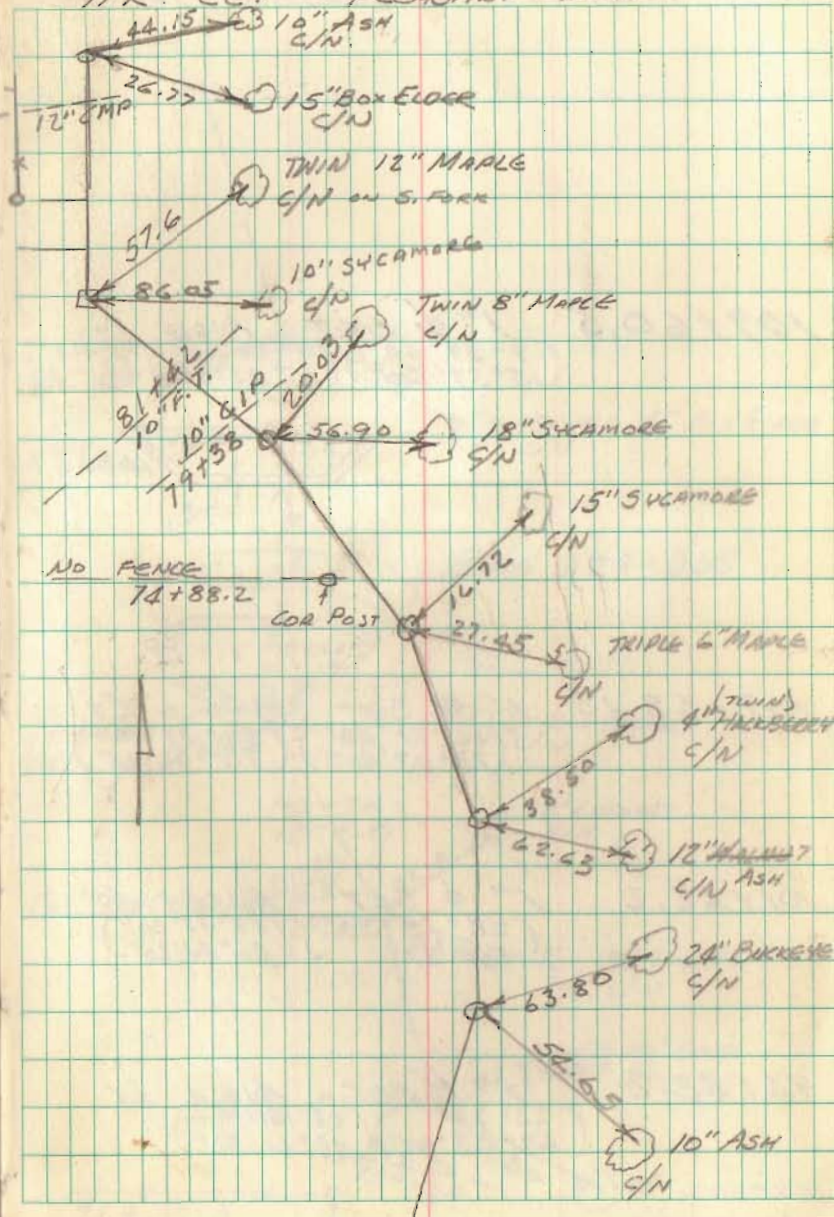 44.15
10" ASH
C/N
26.77
15" BOX ELDER
C/N
12" CMP
TWIN 12" MAPLE
C/N ON S. FORK
57.6
10" SYCAMORE
C/N
86.05
TWIN 8" MAPLE
C/N
20.03
81+42
10" F.T.
10" CIP
79+38
56.90
18" SYCAMORE
C/N
15" SYCAMORE
C/N
16.72
NO FENCE
74+88.2
COR POST
27.45
TRIPLE 6" MAPLE
C/N
(TWIN)
4" HACKBERRY
C/N
38.50
62.63
12" WALNUT
C/N ASH
24" BUCKEYE
C/N
63.80
54.65
10" ASH
C/N